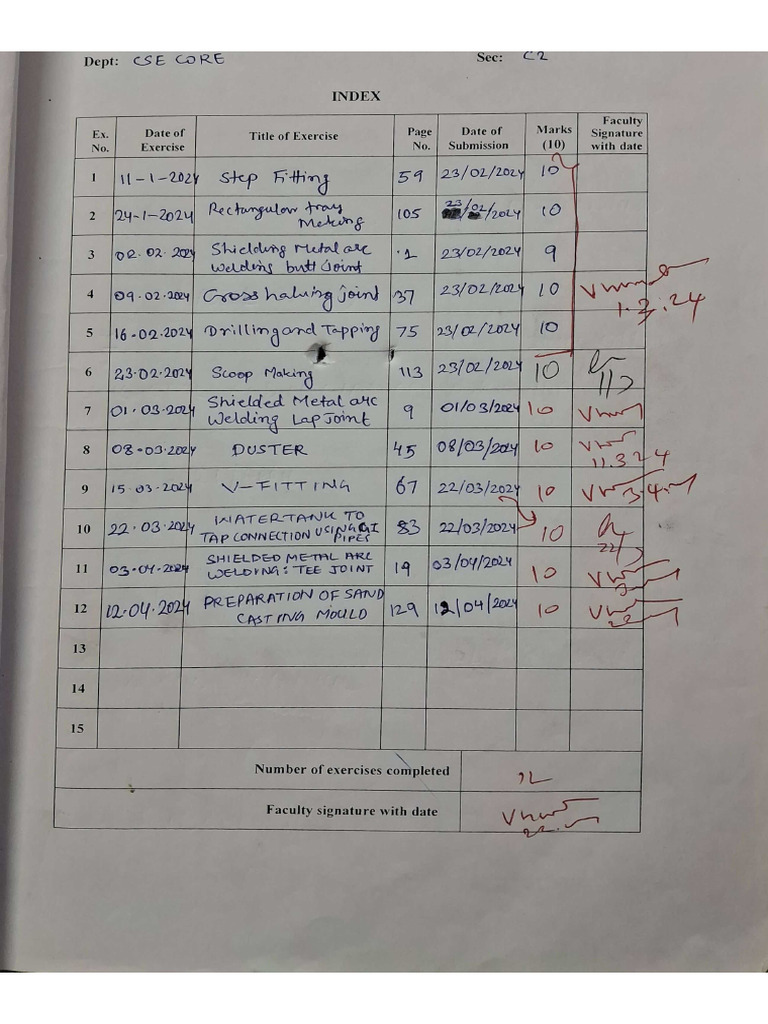 Dept: CSE CORE Sec: C2
INDEX
Ex. No. Date of Exercise Title of Exercise Page No. Date of Submission Marks (10) Faculty Signature with date
1 11-1-2024 Step Fitting 59 23/02/2024 10
2 24-1-2024 Rectangular tray Making 105 23/02/2024 10
3 02.02.2024 Shielding Metal arc welding butt joint 1 23/02/2024 9
4 09.02.2024 Cross halving joint 37 23/02/2024 10 1.3.24
5 16-02.2024 Drilling and Tapping 75 23/02/2024 10
6 23-02.2024 Scoop Making 113 23/02/2024 10
7 01.03.2024 Shielded Metal arc Welding Lap Joint 9 01/03/2024 10
8 08.03.2024 DUSTER 45 08/03/2024 10 11.3.24
9 15.03.2024 V-FITTING 67 22/03/2024 10
10 22.03.2024 WATER TANK TO TAP CONNECTION USING GI PIPES 83 22/03/2024 10
11 03.04.2024 SHIELDED METAL ARC WELDING: TEE JOINT 19 03/04/2024 10
12 12.04.2024 PREPARATION OF SAND CASTING MOULD 129 12/04/2024 10
13
14
15
Number of exercises completed 12
Faculty signature with date